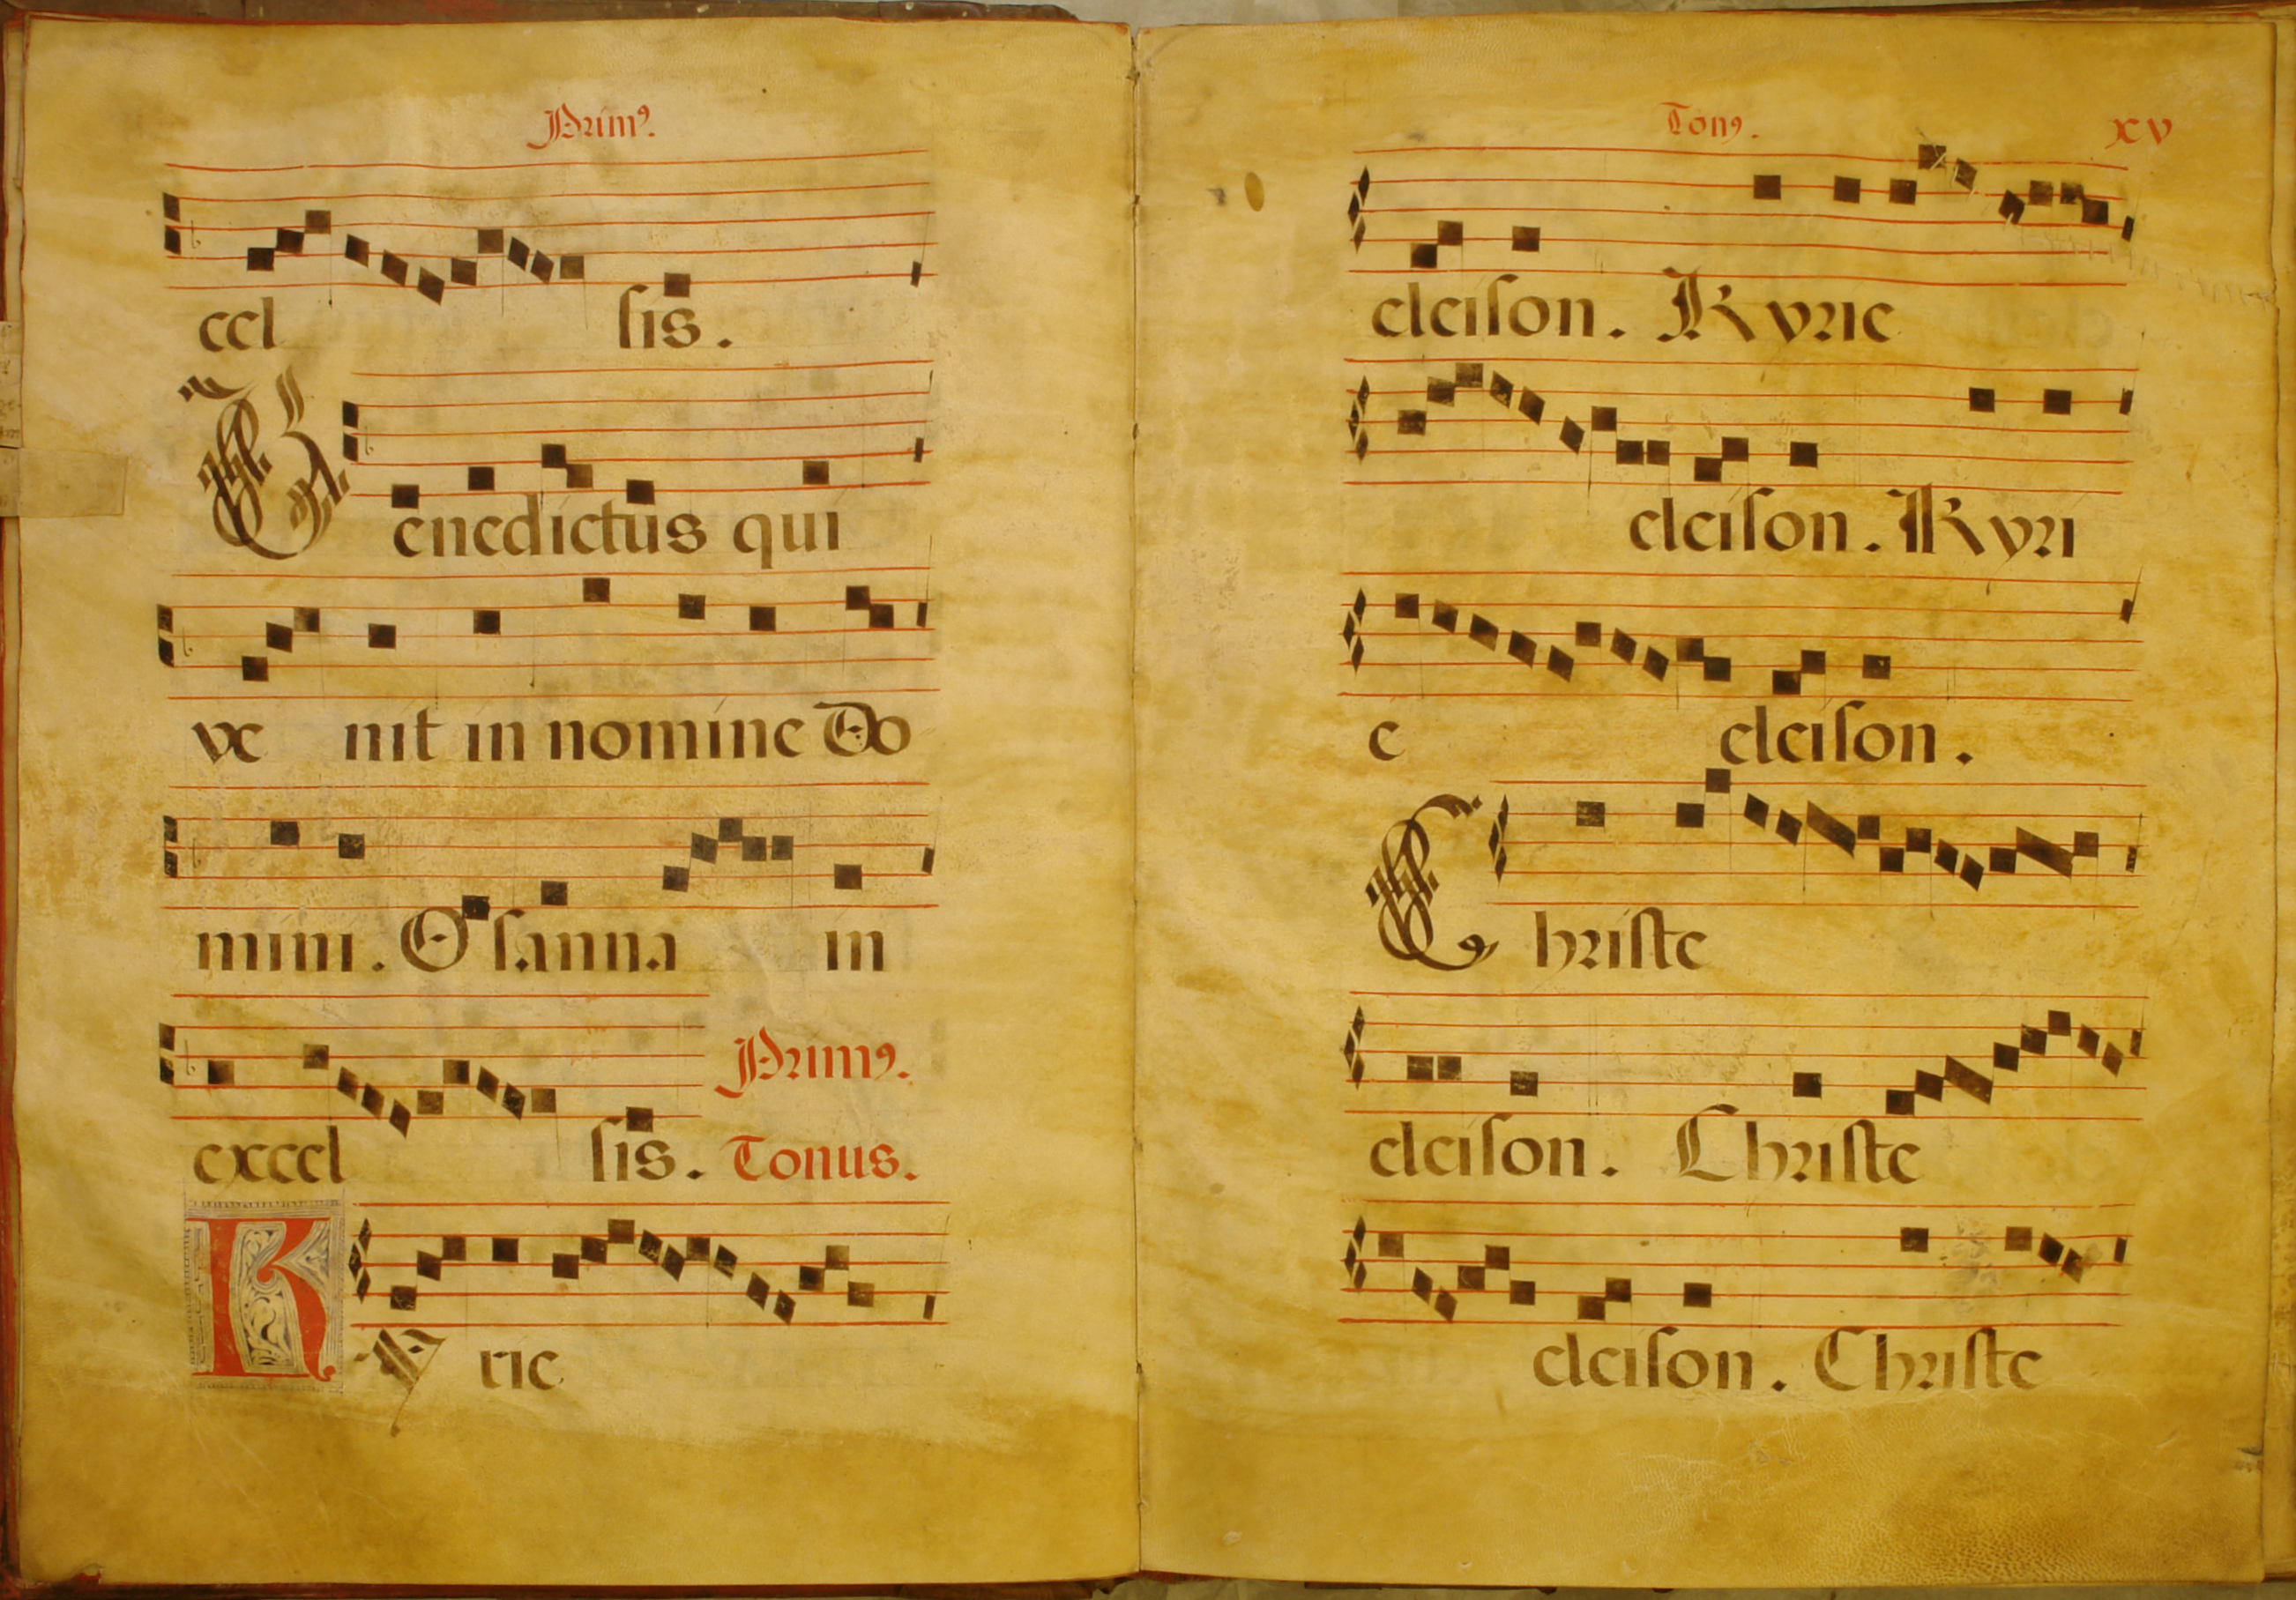 Primꝰ.
cel sis.
Benedictus qui
ve nit in nomine Do
mini. O sanna in
excel sis. Primꝰ.
Tonus.
KY rie
Tonꝰ. xv
eleison. Kyrie
eleison. Kyri
e eleison.
Christe
eleison. Christe
eleison. Christe